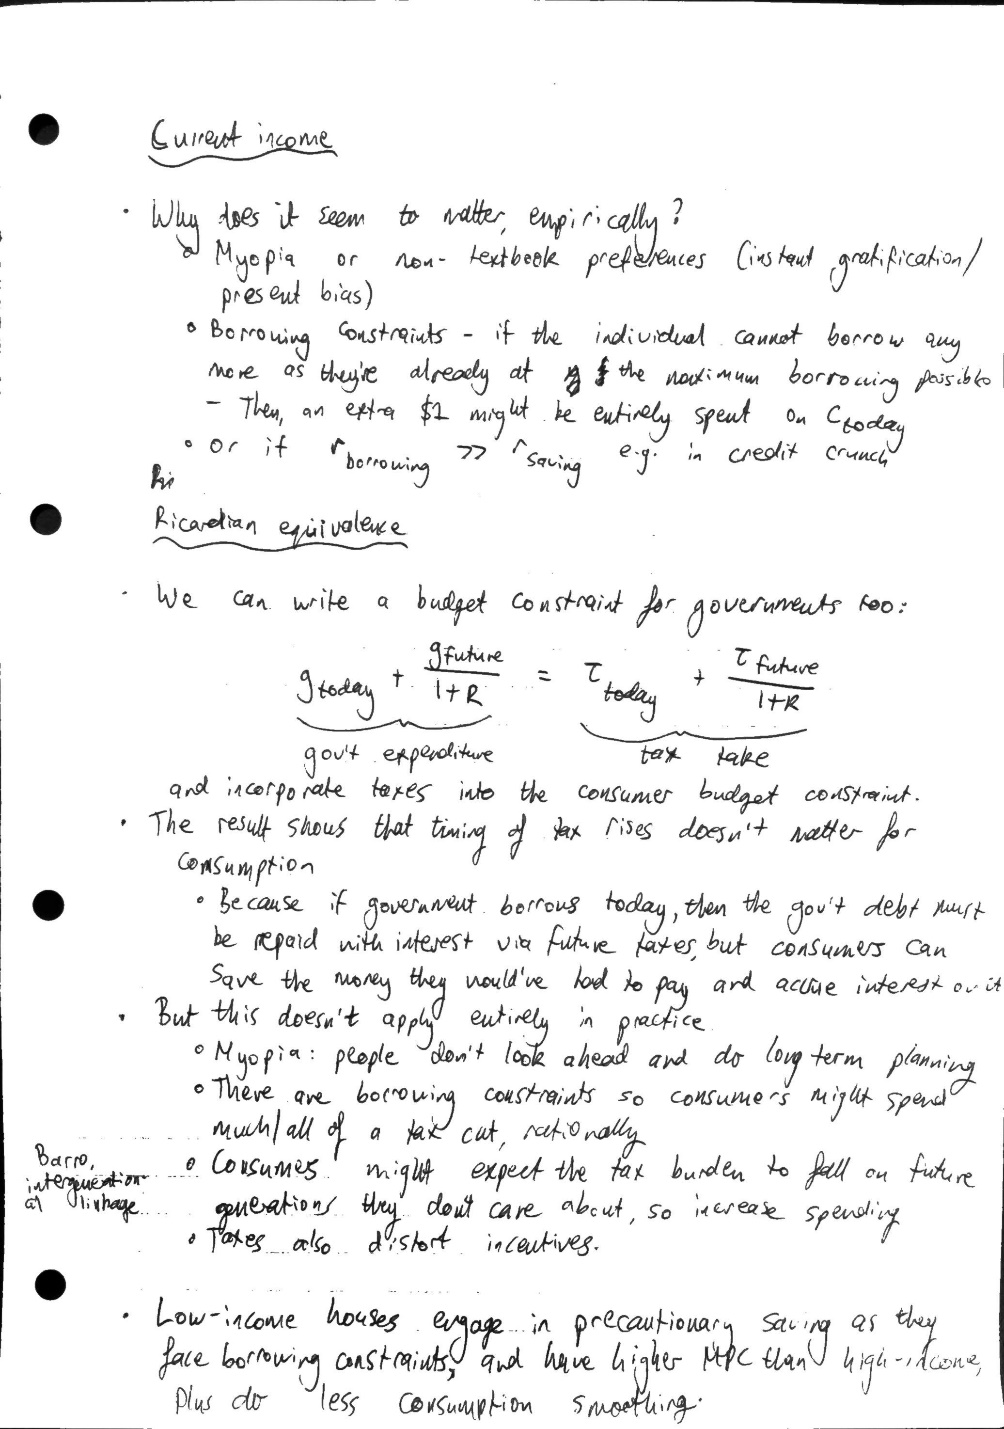 Current income
· Why does it seem to matter, empirically?
∘ Myopia or non-textbook preferences (instant gratification/
present bias)
∘ Borrowing Constraints - if the individual cannot borrow any
more as they're already at the maximum borrowing possible
- Then, an extra $1 might be entirely spent on C today
∘ or if r borrowing >> r saving e.g. in credit crunch
Ri
Ricardian equivalence
· We can write a budget constraint for governments too:
g today + g future / 1+R = τ today + τ future / 1+R
gov't expenditure tax take
and incorporate taxes into the consumer budget constraint.
· The result shows that timing of tax rises doesn't matter for
consumption
∘ Because if government borrows today, then the gov't debt must
be repaid with interest via future taxes, but consumers can
save the money they would've had to pay and accrue interest on it
· But this doesn't apply entirely in practice
∘ Myopia: people don't look ahead and do long term planning
∘ There are borrowing constraints so consumers might spend
much/all of a tax cut, rationally
Barro,
intergeneration
al linkage
∘ Consumes might expect the tax burden to fall on future
generations they don't care about, so increase spending
∘ Taxes also distort incentives.
· Low-income houses engage in precautionary saving as they
face borrowing constraints, and have higher MPC than high-income,
plus do less consumption smoothing.